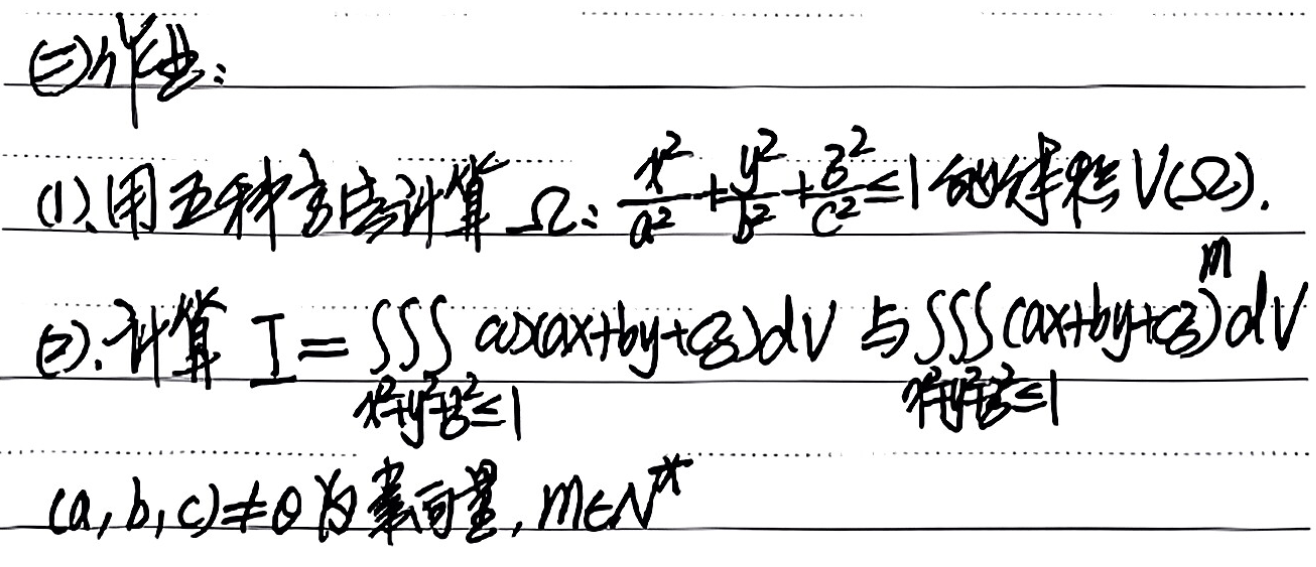 (二)作业:
(1).用五种方法计算 Ω: x²/a²+y²/b²+z²/c²≤1 的体积 V(Ω).
(2).计算 I=∭_{x²+y²+z²≤1} cos(ax+by+cz)dV 与 ∭_{x²+y²+z²≤1} (ax+by+cz)^m dV
(a,b,c)≠θ为常向量, m∈N*